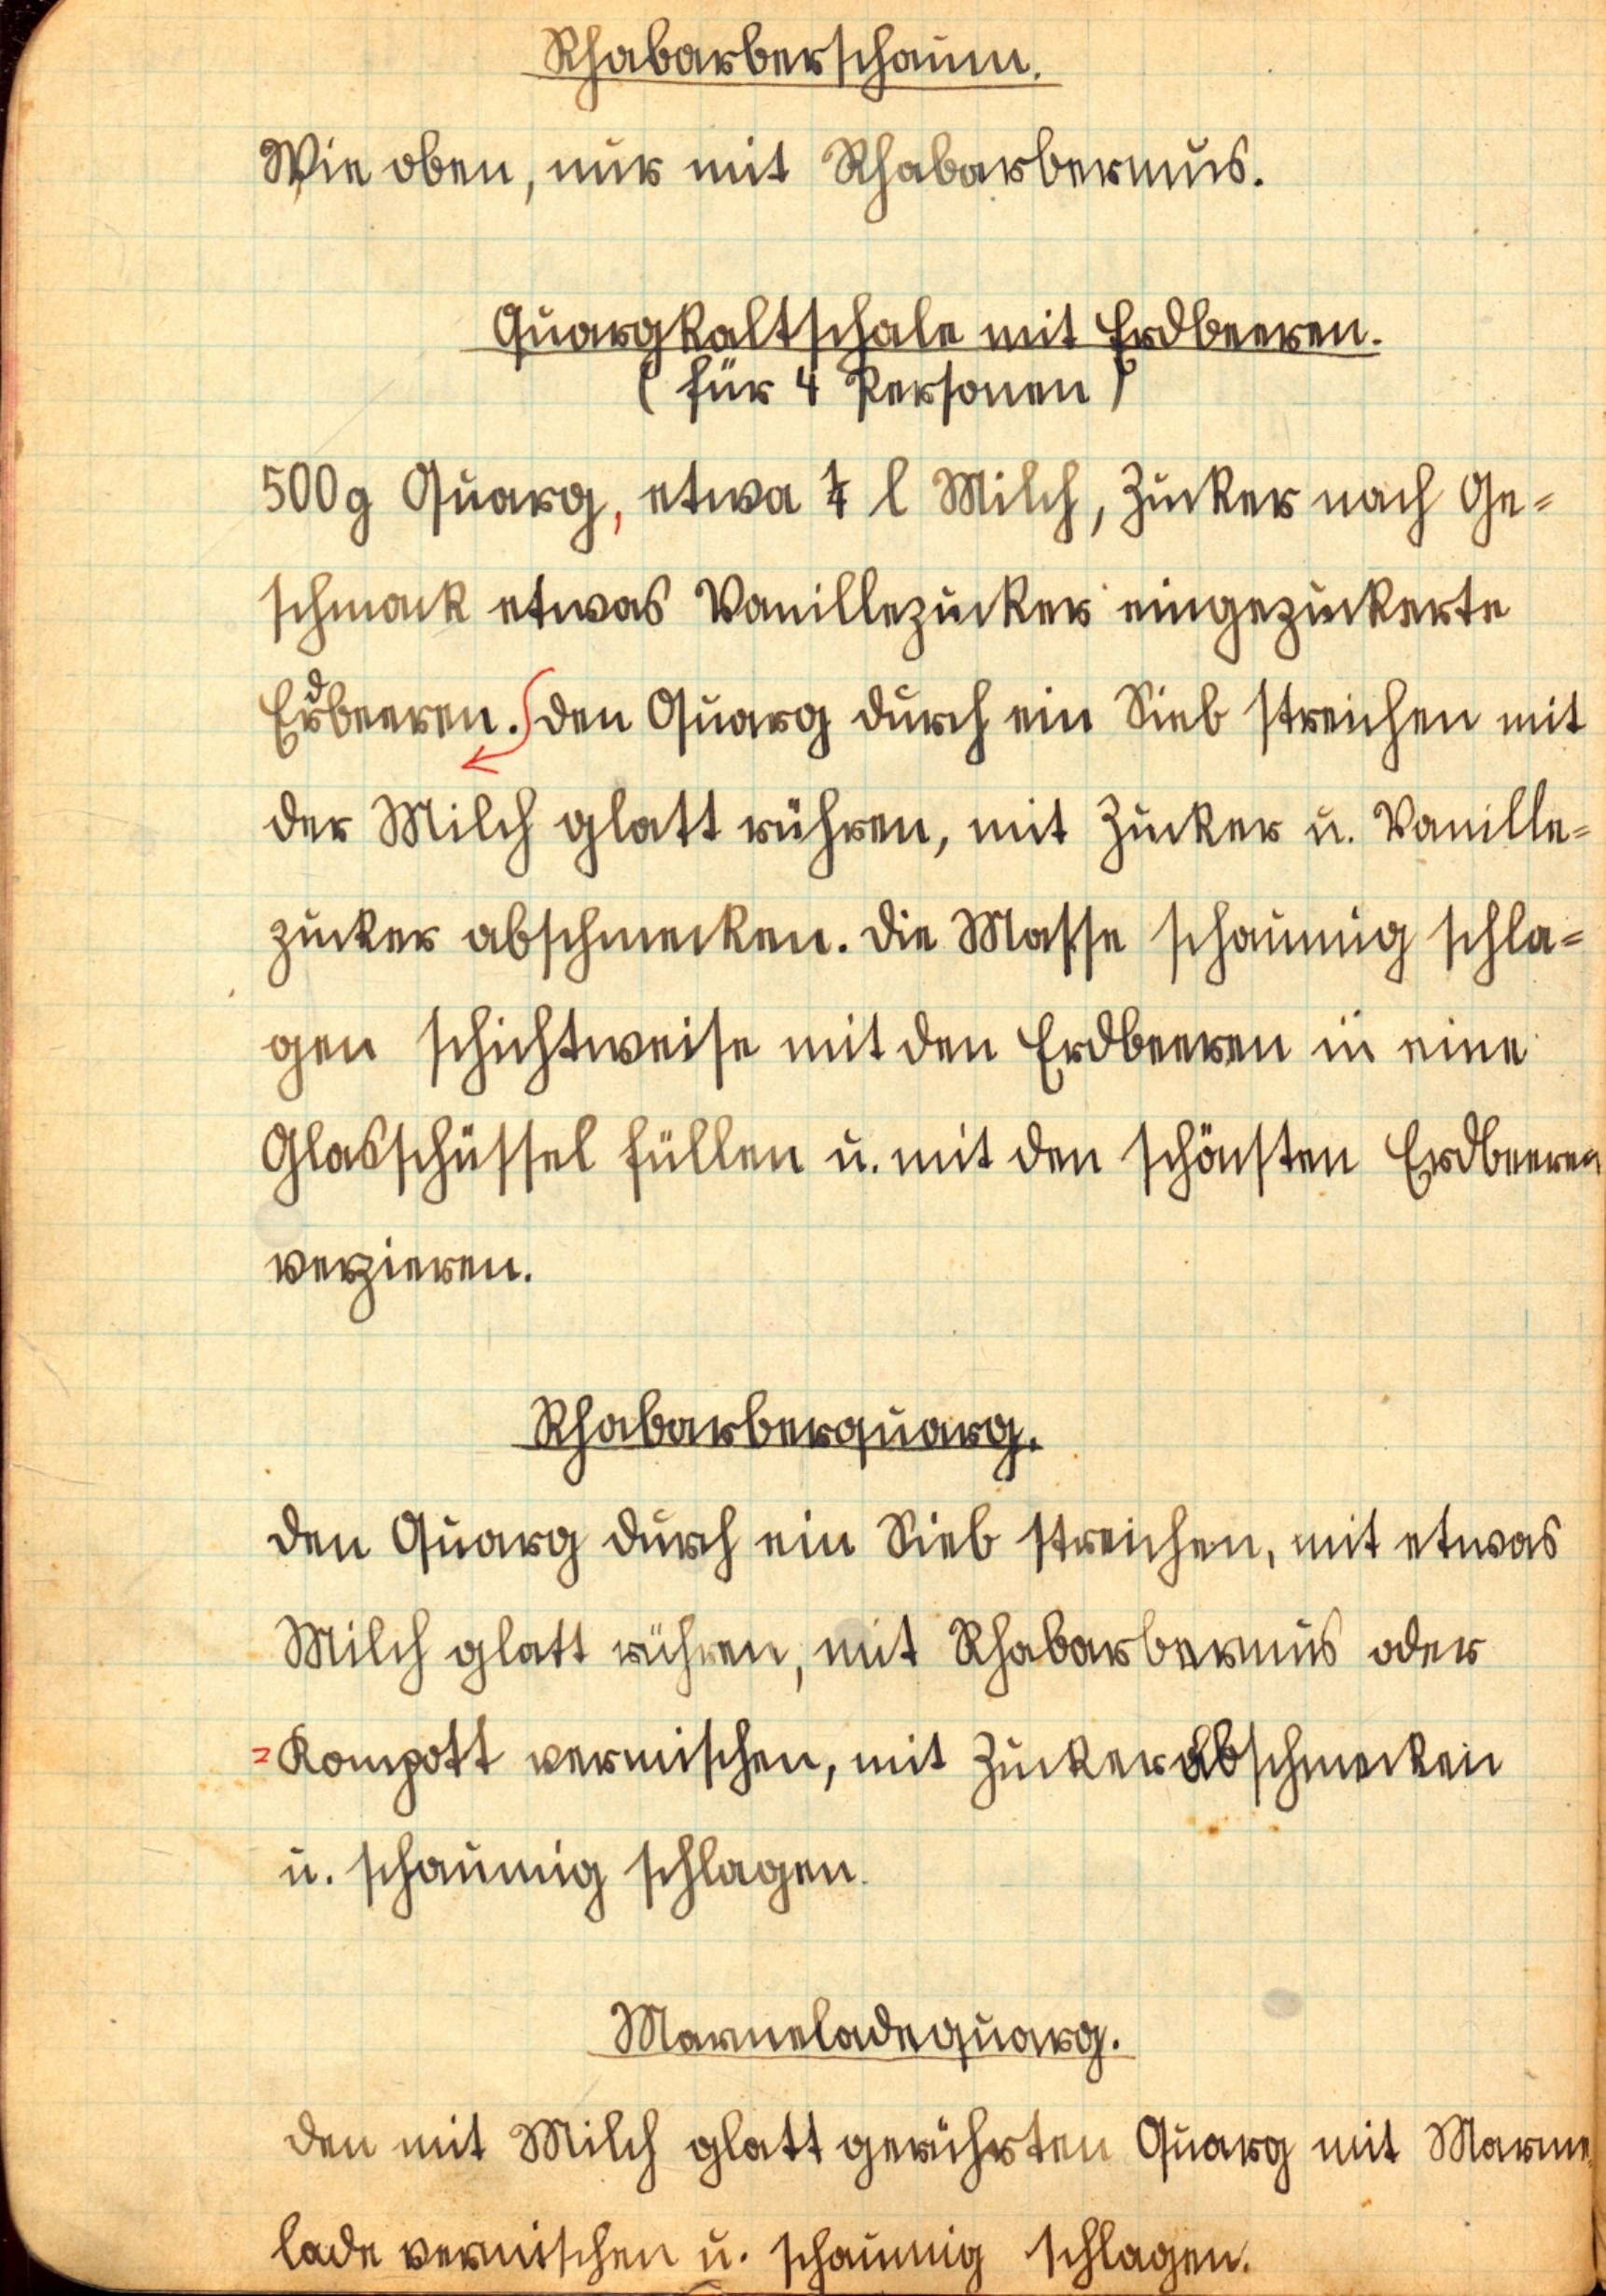 Rhabarberschaum.
Wie oben, nur mit Rhabarbermus.
Quargkaltschale mit Erdbeeren.
(für 4 Personen)
500g Quarg, etwa ¼ l Milch, Zucker nach Ge=
schmack etwas Vanillezucker eingezuckerte
Erdbeeren. den Quarg durch ein Sieb streichen mit
der Milch glatt rühren, mit Zucker u. Vanille=
zucker abschmecken. die Masse schaumig schla=
gen schichtweise mit den Erdbeeren in eine
Glasschüssel füllen u. mit den schönsten Erdbeeren
verzieren.
Rhabarberquarg.
den Quarg durch ein Sieb streichen, mit etwas
Milch glatt rühren, mit Rhabarbermus oder
=Kompott vermischen, mit Zucker abschmecken
u. schaumig schlagen.
Marmeladequarg.
den mit Milch glatt gerührten Quarg mit Marme
lade vermischen u. schaumig schlagen.